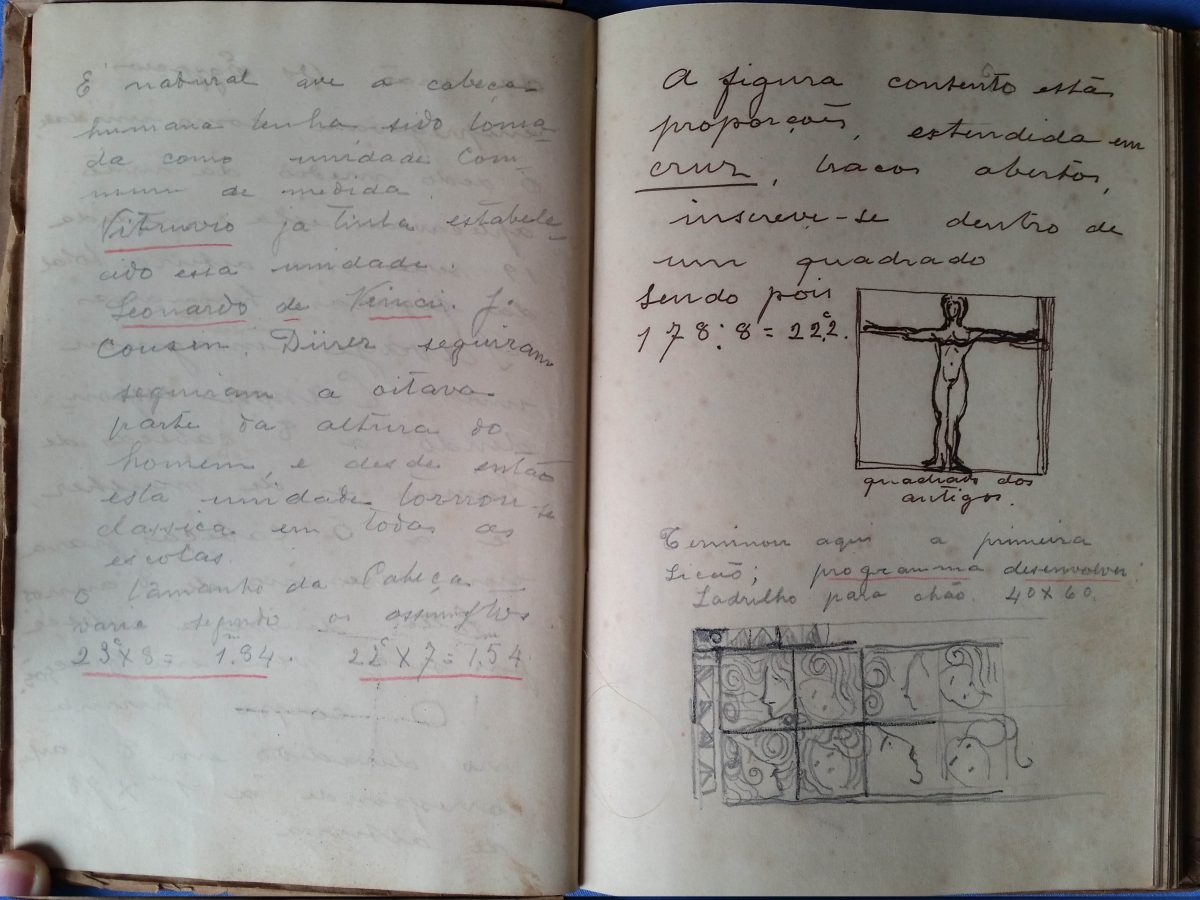 E natural que a cabeça
humana tenha sido toma-
da como unidade com-
mum de medida
Vitruvio ja tinha estabele-
cido essa unidade.
Leonardo de Vinci. J.
Cousin. Dürer seguiram
seguiram a oitava
parte da altura do
homem, e desde então
esta unidade tornou-se
classica em todas as
escolas.
O tamanho da Cabeça
varia segundo os assumptos
23c X 8 = 1m.84. 22c X 7 = 1m.54
A figura contento estas
proporções, estendida em
cruz, bracos abertos,
inscreve-se dentro de
um quadrado
Sendo pois
178:8=22c,2.
quadrado dos
antigos.
Terminou aqui a primeira
Licão; programma desenvolver:
Ladrilho para chão. 40X60.